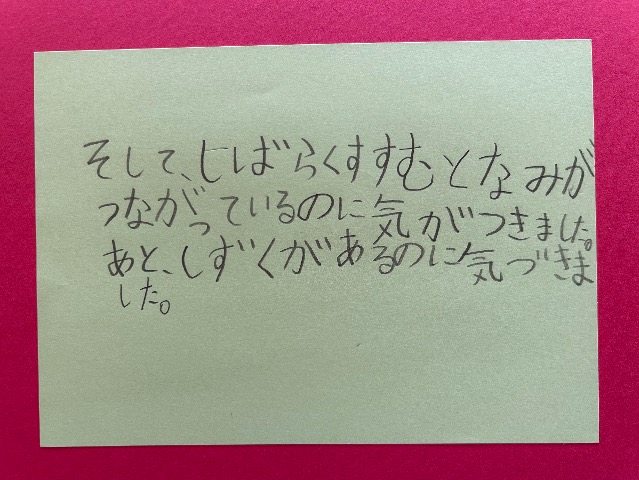 そして、しばらくすすむとなみが
つながっているのに気がつきました。
あと、しずくがあるのに気づきま
した。